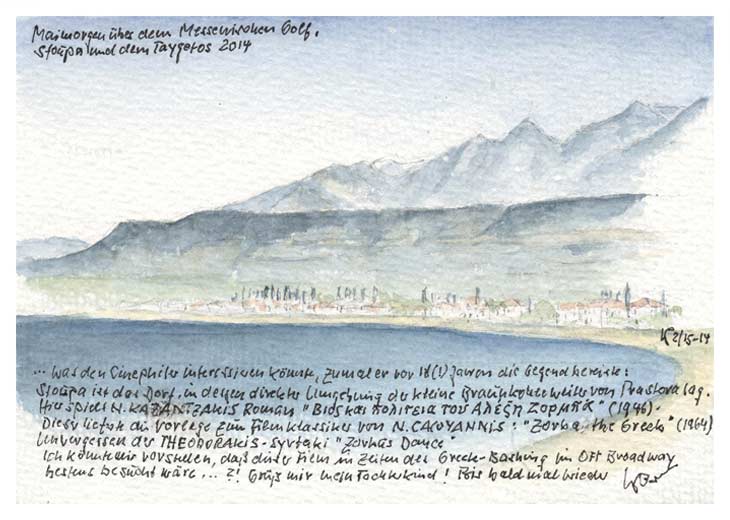 Maimorgen über dem Messenischen Golf.
Stoupa und dem Taygetos 2014
2/15-14
... was den Cinephilen interessieren könnte, zumal er vor 18(!) Jahren die Gegend bereiste:
Stoupa ist das Dorf, in dessen direkter Umgebung der kleine Braunkohleweiler von Prastova lag.
Hier spielt N. KAZANTZAKIS Roman "Βίος και πολιτεία του Αλέξη Ζορμπά" (1946).
Dieser lieferte die Vorlage zum Filmklassiker von N. CACOYANNIS: "Zorba, the Greek" (1964)
Unvergessen der THEODORAKIS-Syrtaki "Zorbas Dance"
Ich könnte mir vorstellen, daß dieser Film in Zeiten des Greek-Bashing im Off Broadway
bestens besucht wäre ... ?! Grüß mir mein Tochterkind! Bis bald mal wieder